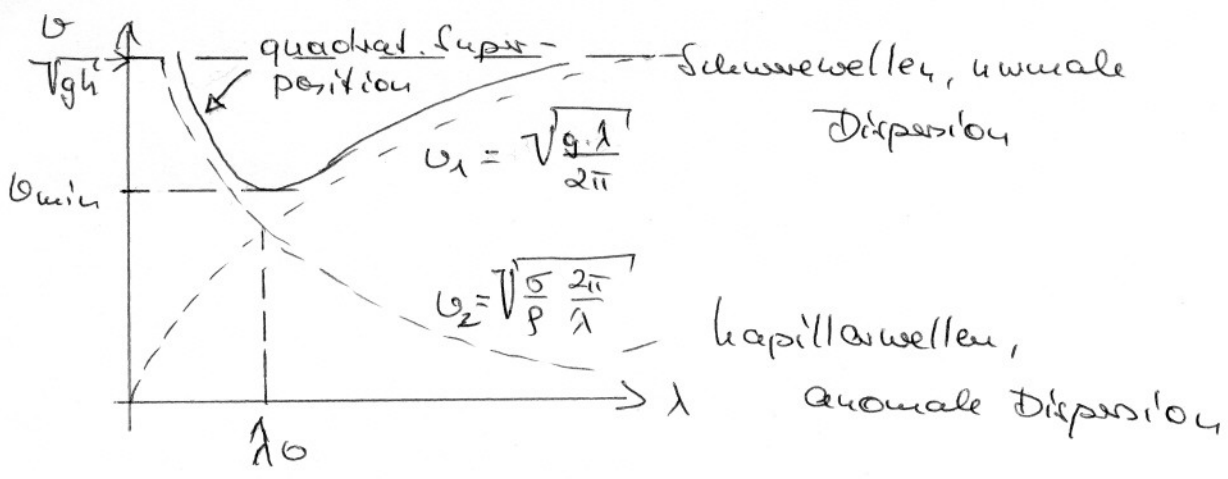 v
√gh
quadrat. Super-
position
Schwerewellen, normale
Dispersion
v₁ = √(g·λ/2π)
vmin
v₂ = √(σ/ρ 2π/λ)
Kapillarwellen,
anomale Dispersion
λ
λ0